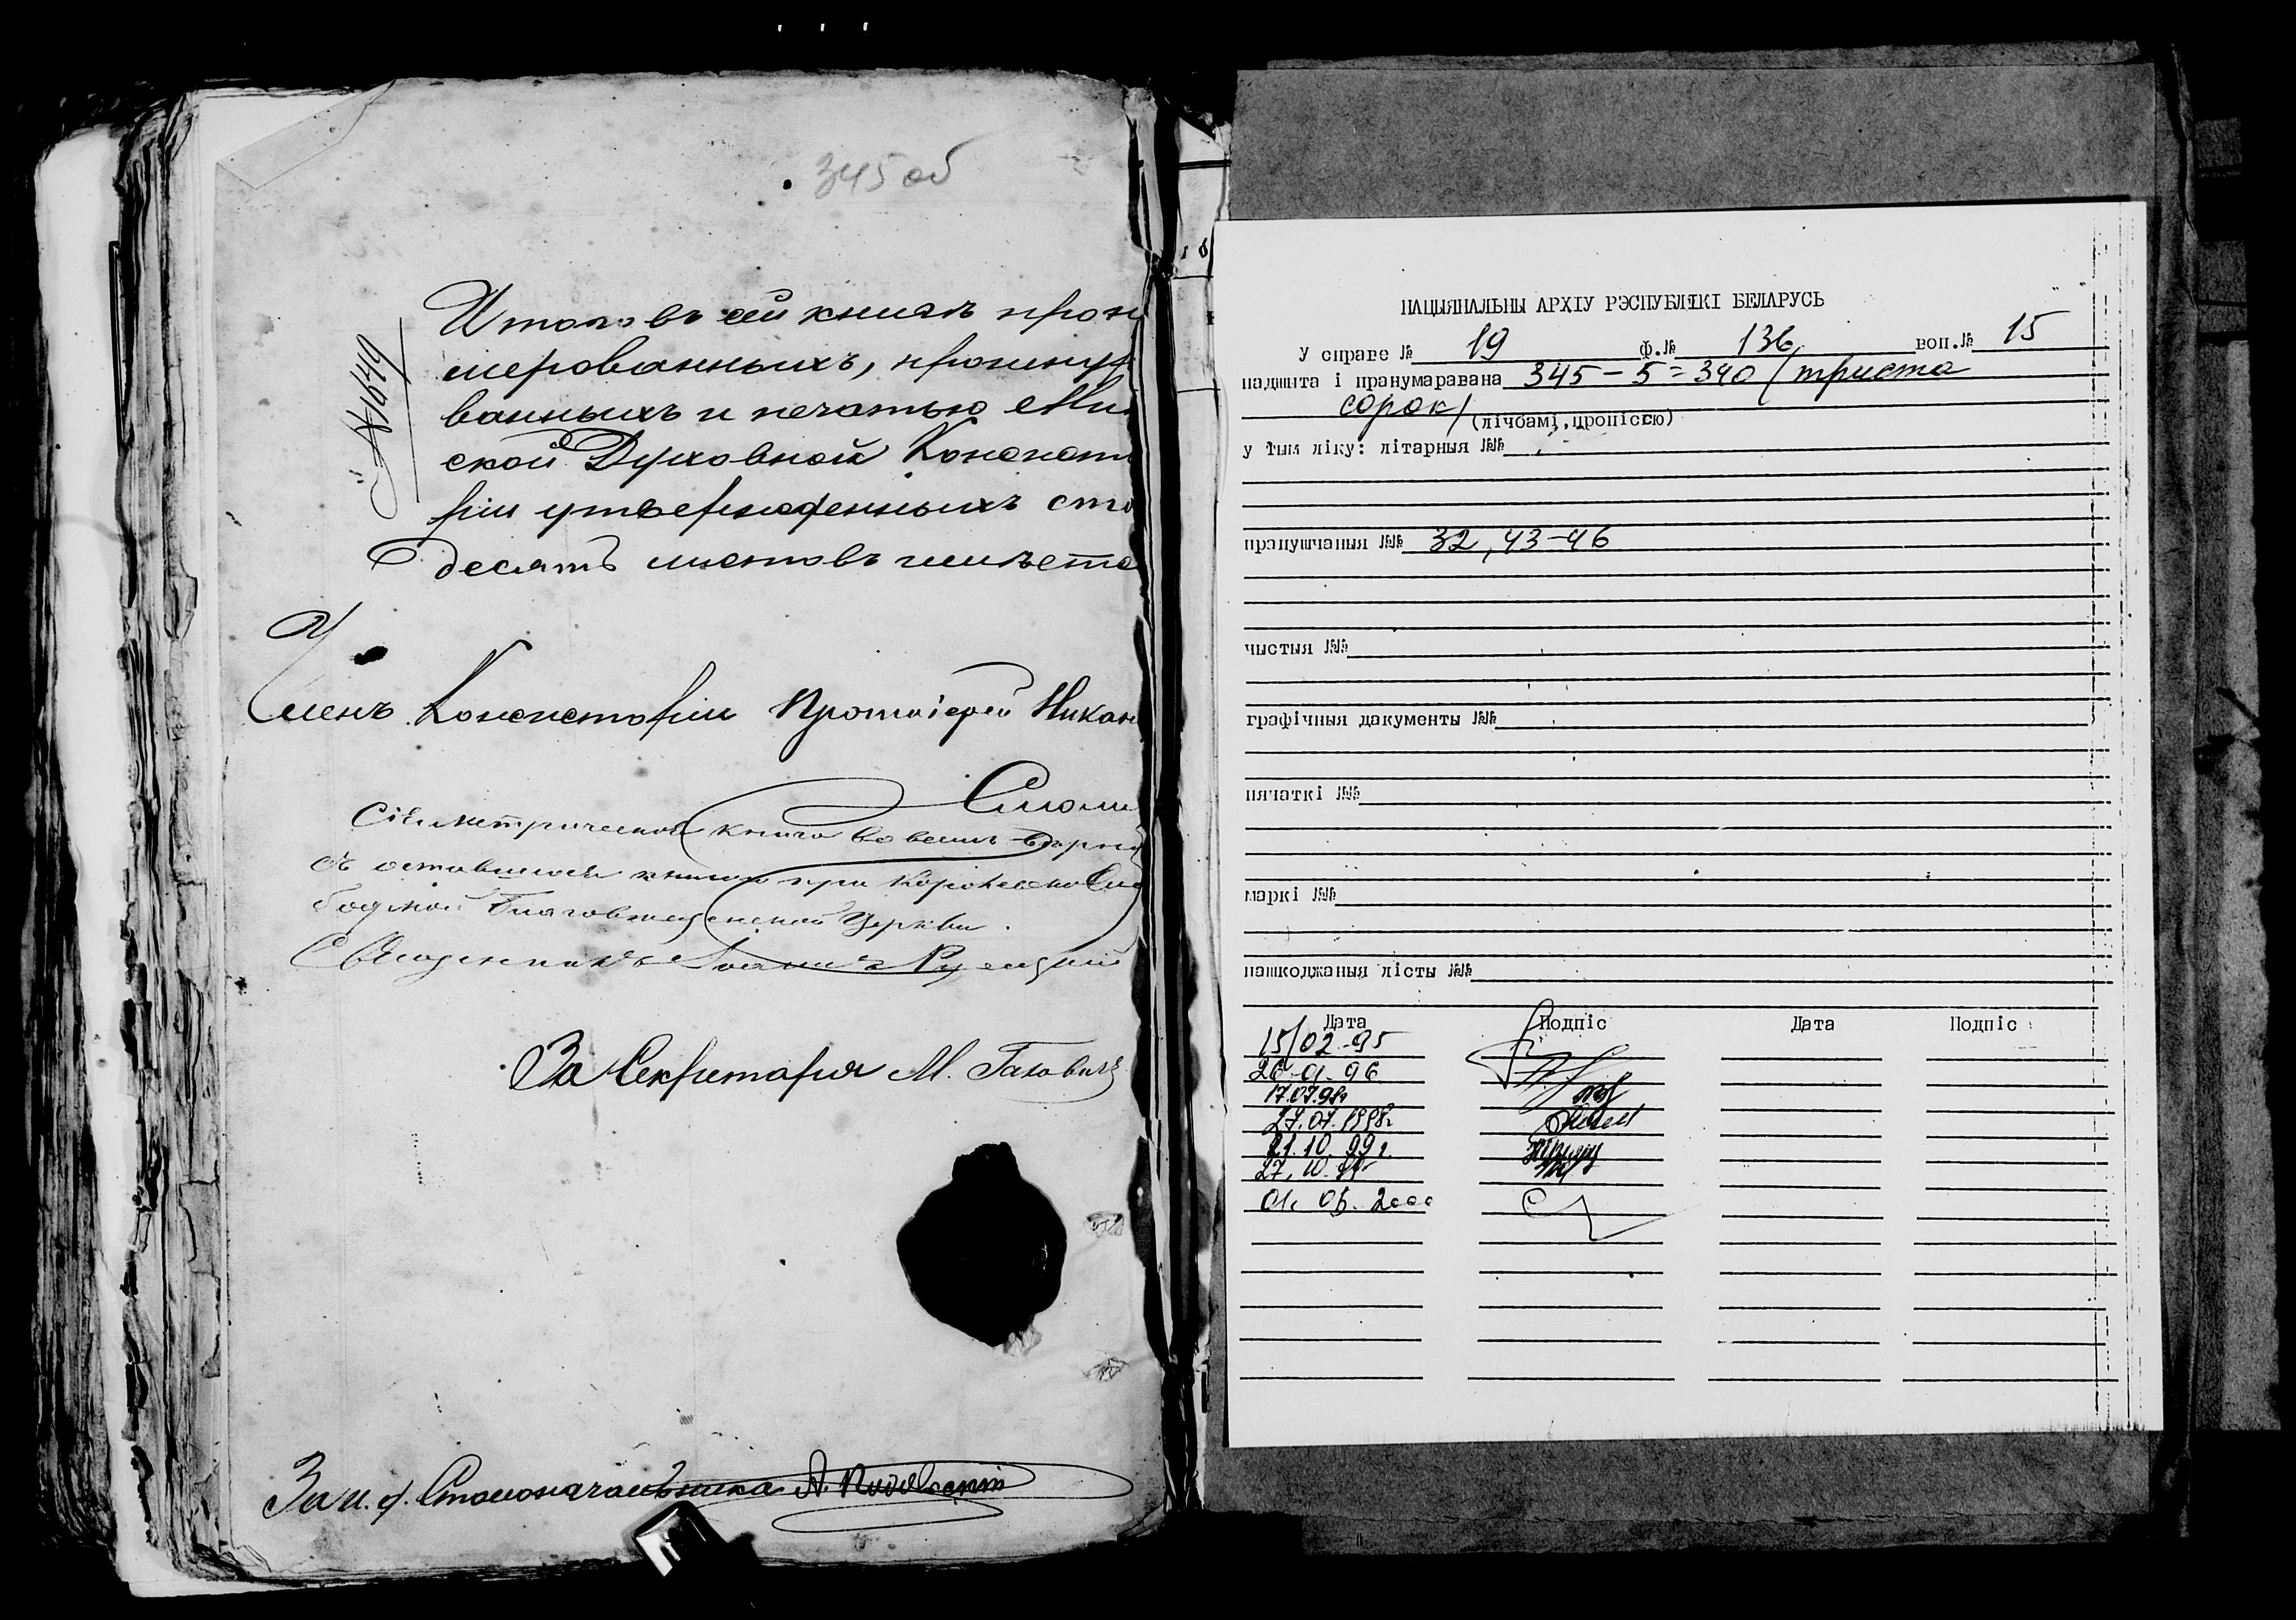 345 об
№ 1649
Итого въ сей книгѣ прону
мерованныхъ, прошнуро
ванныхъ и печатью Мин
ской Духовной Консисто
ріи утвержденныхъ сто
десять листовъ имѣется
Членъ Консисторіи Протоіерей Никан
Смоли
Сія метрическая книга во всемъ вѣрна
съ оставшеюся книгою при
бодской Благовѣщенской Церкви.
Священникъ Іоаннъ
За Секретаря М.
За и. д. Столоначальника А.
НАЦЫЯНАЛЬНЫ АРХІУ РЭСПУБЛІКІ БЕЛАРУСЬ
У справе № 19 ф.№ 136 воп.№ 15
падшыта і пранумаравана 345 – 5 = 340 / триста
сорок /
(лічбамі, пропіссю)
у тым ліку: літарныя №№
прапушчаныя №№ 32, 43-46
чыстыя №№
графічныя дакументы №№
пячаткі №№
маркі №№
пашкоджаныя лісты №№
Дата Подпіс Дата Подпіс
15/02-95
26-01-96
17.07.98г
27.07.1998г
21.10.99г.
27.10.99г
01.03.2000